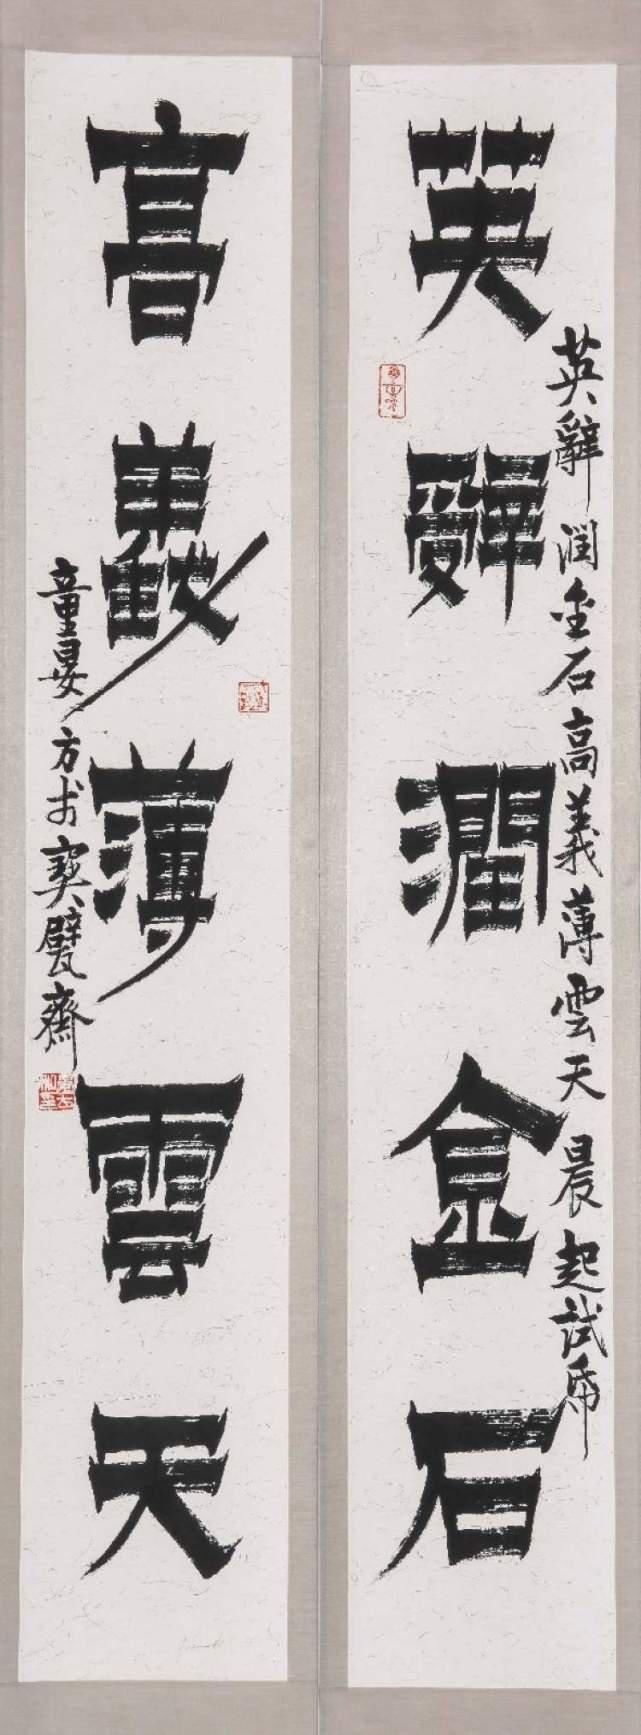 英辭潤金石
英辭潤金石高義薄雲天晨起試帋
高義薄雲天
童晏方书奭甓齋